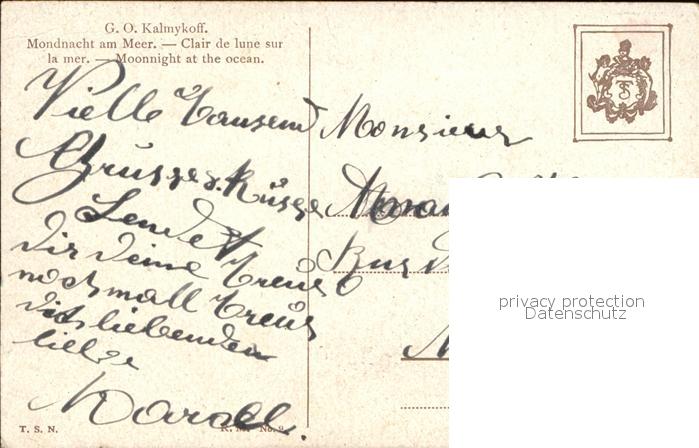 G. O. Kalmykoff.
Mondnacht am Meer. — Clair de lune sur
la mer. — Moonnight at the ocean.
Vielle Tausend
Grüsse u. Küsse
Sendet
dir deine treue
nochmall treue
dich liebenden
liebe
Monsieur
Rue
privacy protection
Datenschutz
T. S. N.